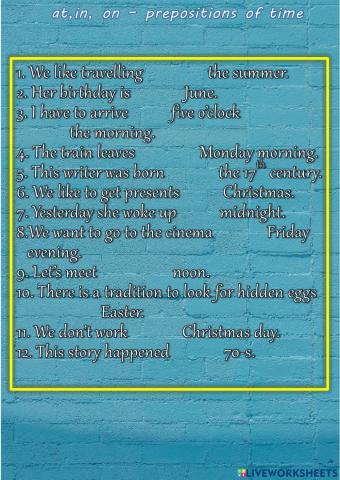 at,in, on - prepositions of time
1. We like travelling the summer.
2. Her birthday is June.
3. I have to arrive five o'clock
the morning.
4. The train leaves Monday morning.
5. This writer was born the 17th century.
6. We like to get presents Christmas.
7. Yesterday she woke up midnight.
8.We want to go to the cinema Friday
evening.
9. Let's meet noon.
10. There is a tradition to look for hidden eggs
Easter.
11. We don't work Christmas day.
12. This story happened 70-s.
LIVEWORKSHEETS